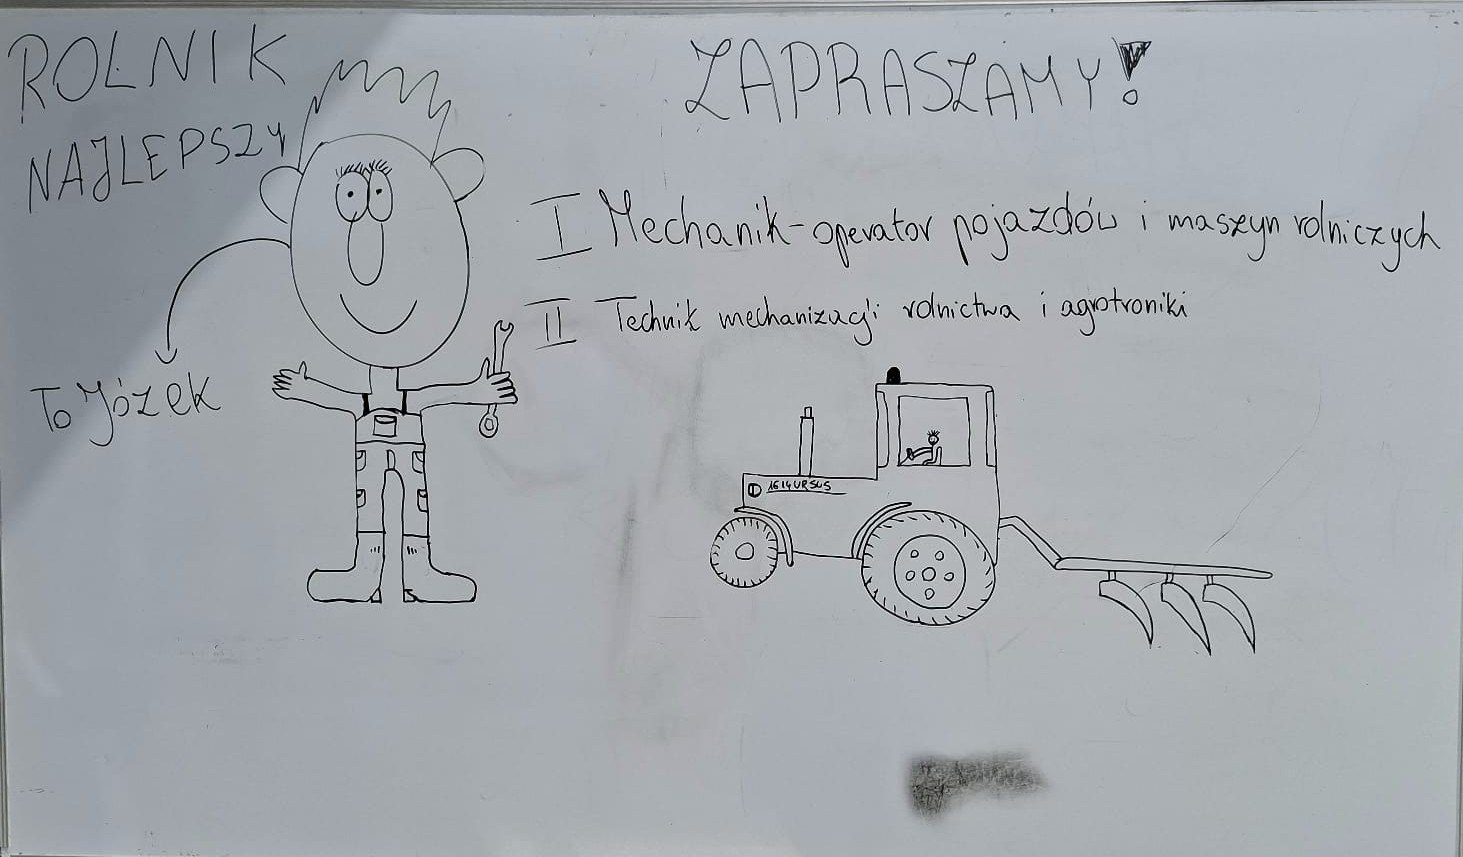 ROLNIK
NAJLEPSZY
To Józek
ZAPRASZAMY!
I Mechanik-operator pojazdów i maszyn rolniczych
II Technik mechanizacji rolnictwa i agrotroniki
1614 URSUS